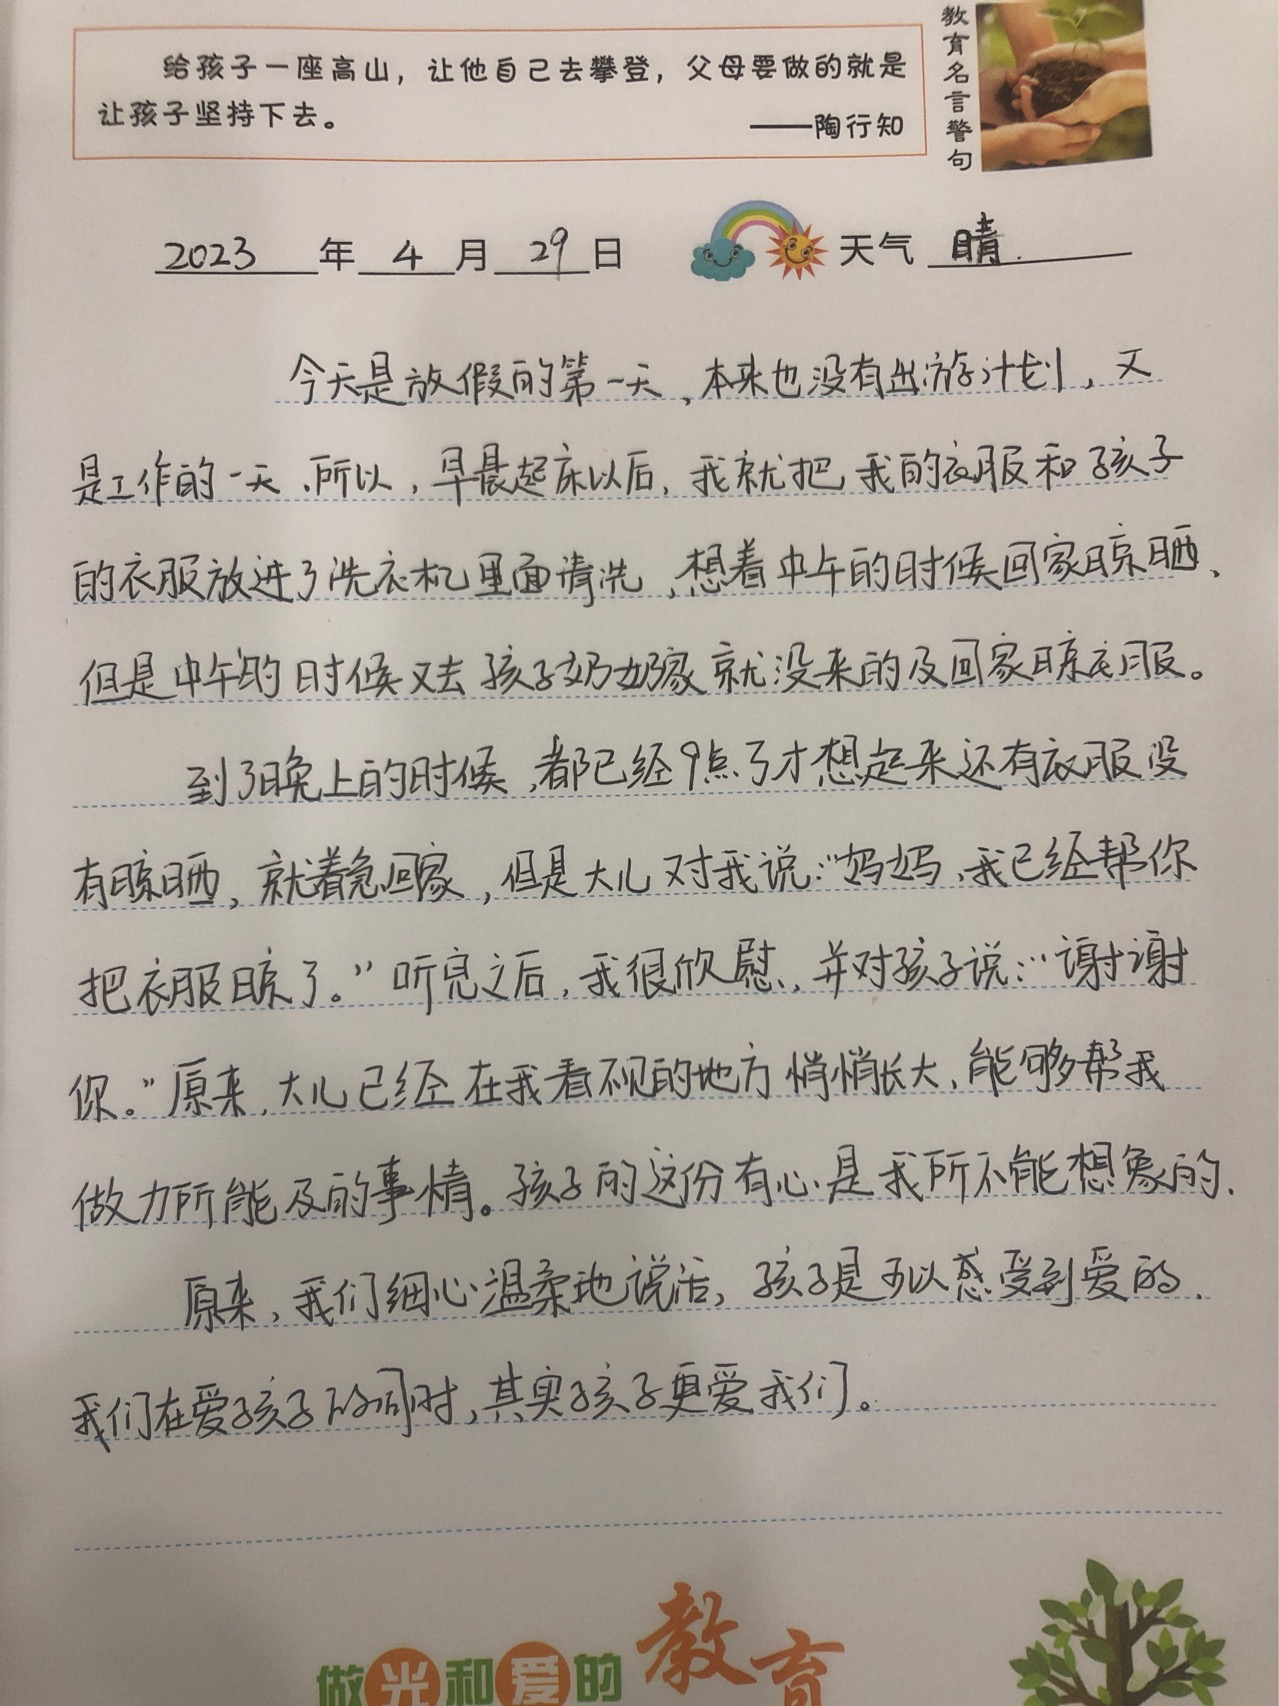 给孩子一座高山，让他自己去攀登，父母要做的就是
让孩子坚持下去。
——陶行知
教育名言警句
2023年4月29日 天气 晴.
今天是放假的第一天，本来也没有出游计划，又
是工作的一天.所以，早晨起床以后，我就把我的衣服和孩子
的衣服放进了洗衣机里面清洗，想着中午的时候回家晾晒、
但是中午的时候又去孩子奶奶家就没来的及回家晾衣服。
到了晚上的时候，都已经9点了才想起来还有衣服没
有晾晒，就着急回家，但是大儿对我说：“妈妈，我已经帮你
把衣服晾了。”听完之后，我很欣慰，并对孩子说：“谢谢
你。”原来，大儿已经在我看不见的地方悄悄长大，能够帮我
做力所能及的事情。孩子的这份有心是我所不能想象的.
原来，我们细心温柔地说话，孩子是可以感受到爱的.
我们在爱孩子的同时，其实孩子更爱我们。
做光和爱的教育